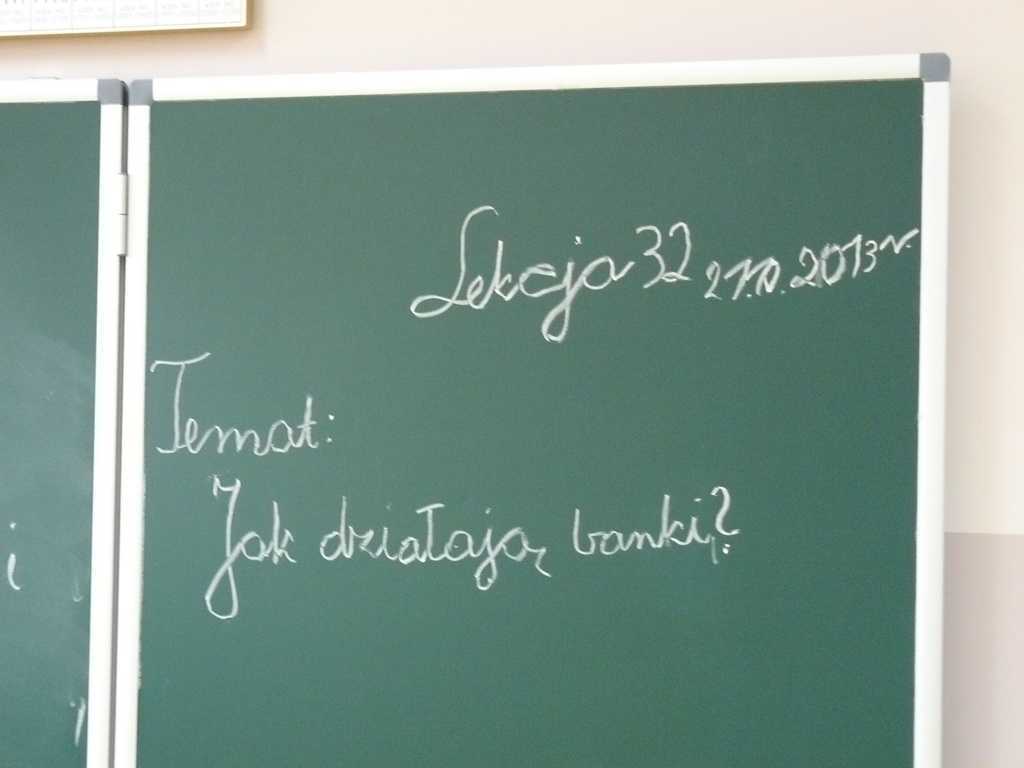 Lekcja 32 21.10.2013 r.
Temat:
Jak działają banki?
i